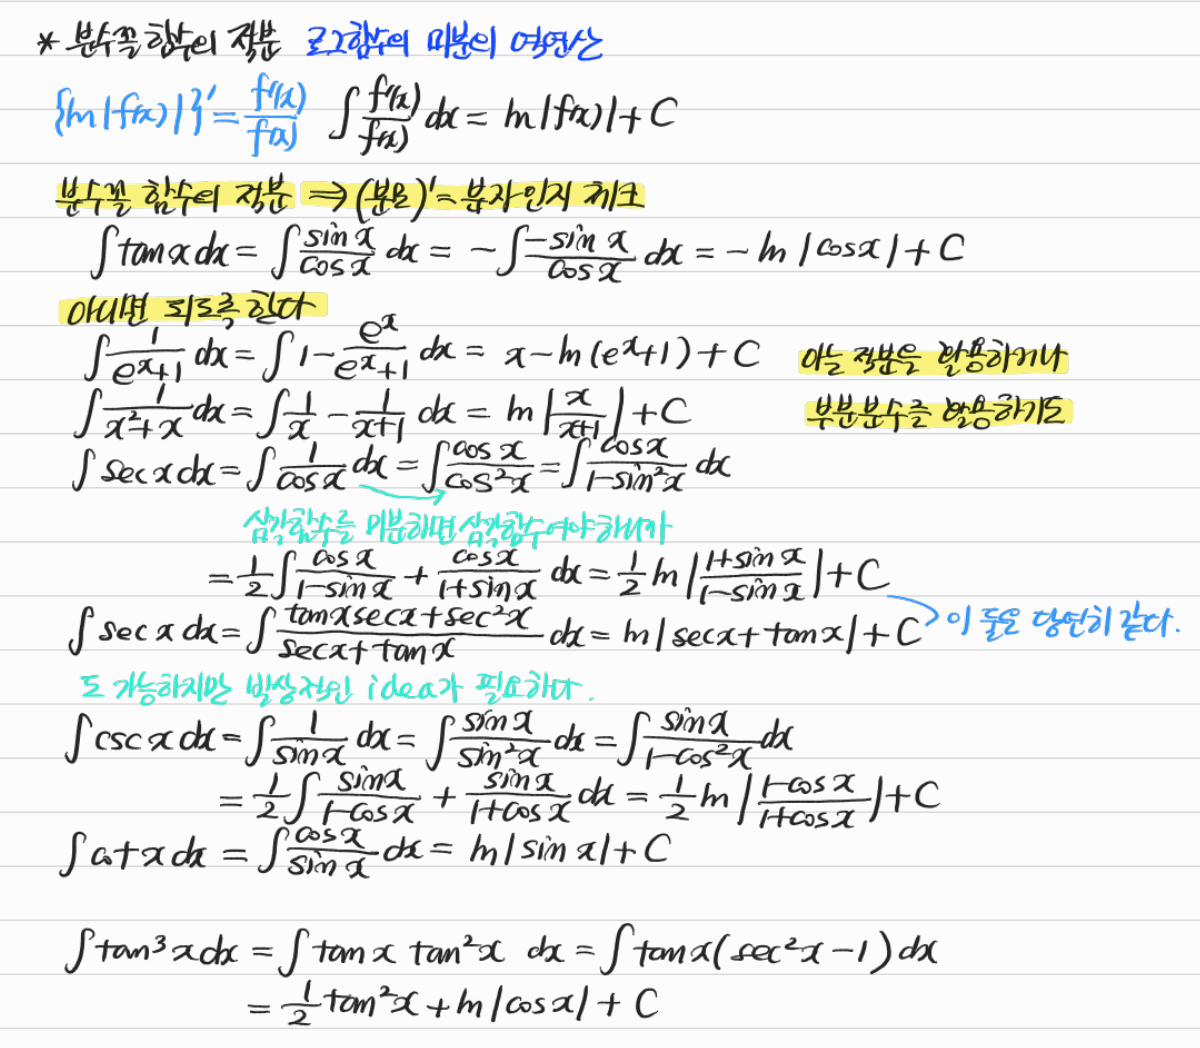 * 분수꼴 함수의 적분 로그함수의 미분의 역연산
{ln|f(x)|}' = f'(x)/f(x) ∫ f'(x)/f(x) dx = ln|f(x)| + C
분수꼴 함수의 적분 ⇒ (분모)' = 분자인지 체크
∫ tan x dx = ∫ sin x/cos x dx = -∫ -sin x/cos x dx = -ln|cos x| + C
아니면 되도록 한다
∫ 1/(e^x+1) dx = ∫ 1 - e^x/(e^x+1) dx = x - ln(e^x+1) + C 아는 적분을 활용하거나
∫ 1/(x²+x) dx = ∫ 1/x - 1/(x+1) dx = ln|x/(x+1)| + C 부분분수를 활용하기도
∫ sec x dx = ∫ 1/cos x dx = ∫ cos x/cos²x = ∫ cos x/(1-sin²x) dx
삼각함수를 미분하면 삼각함수여야 하니까
= 1/2 ∫ cos x/(1-sin x) + cos x/(1+sin x) dx = 1/2 ln|(1+sin x)/(1-sin x)| + C
∫ sec x dx = ∫ (tan x sec x + sec²x)/(sec x + tan x) dx = ln|sec x + tan x| + C 이 둘은 당연히 같다.
도 가능하지만 발상적인 idea가 필요하다.
∫ csc x dx = ∫ 1/sin x dx = ∫ sin x/sin²x dx = ∫ sin x/(1-cos²x) dx
= 1/2 ∫ sin x/(1-cos x) + sin x/(1+cos x) dx = 1/2 ln|(1-cos x)/(1+cos x)| + C
∫ cot x dx = ∫ cos x/sin x dx = ln|sin x| + C
∫ tan³x dx = ∫ tan x tan²x dx = ∫ tan x (sec²x - 1) dx
= 1/2 tan²x + ln|cos x| + C